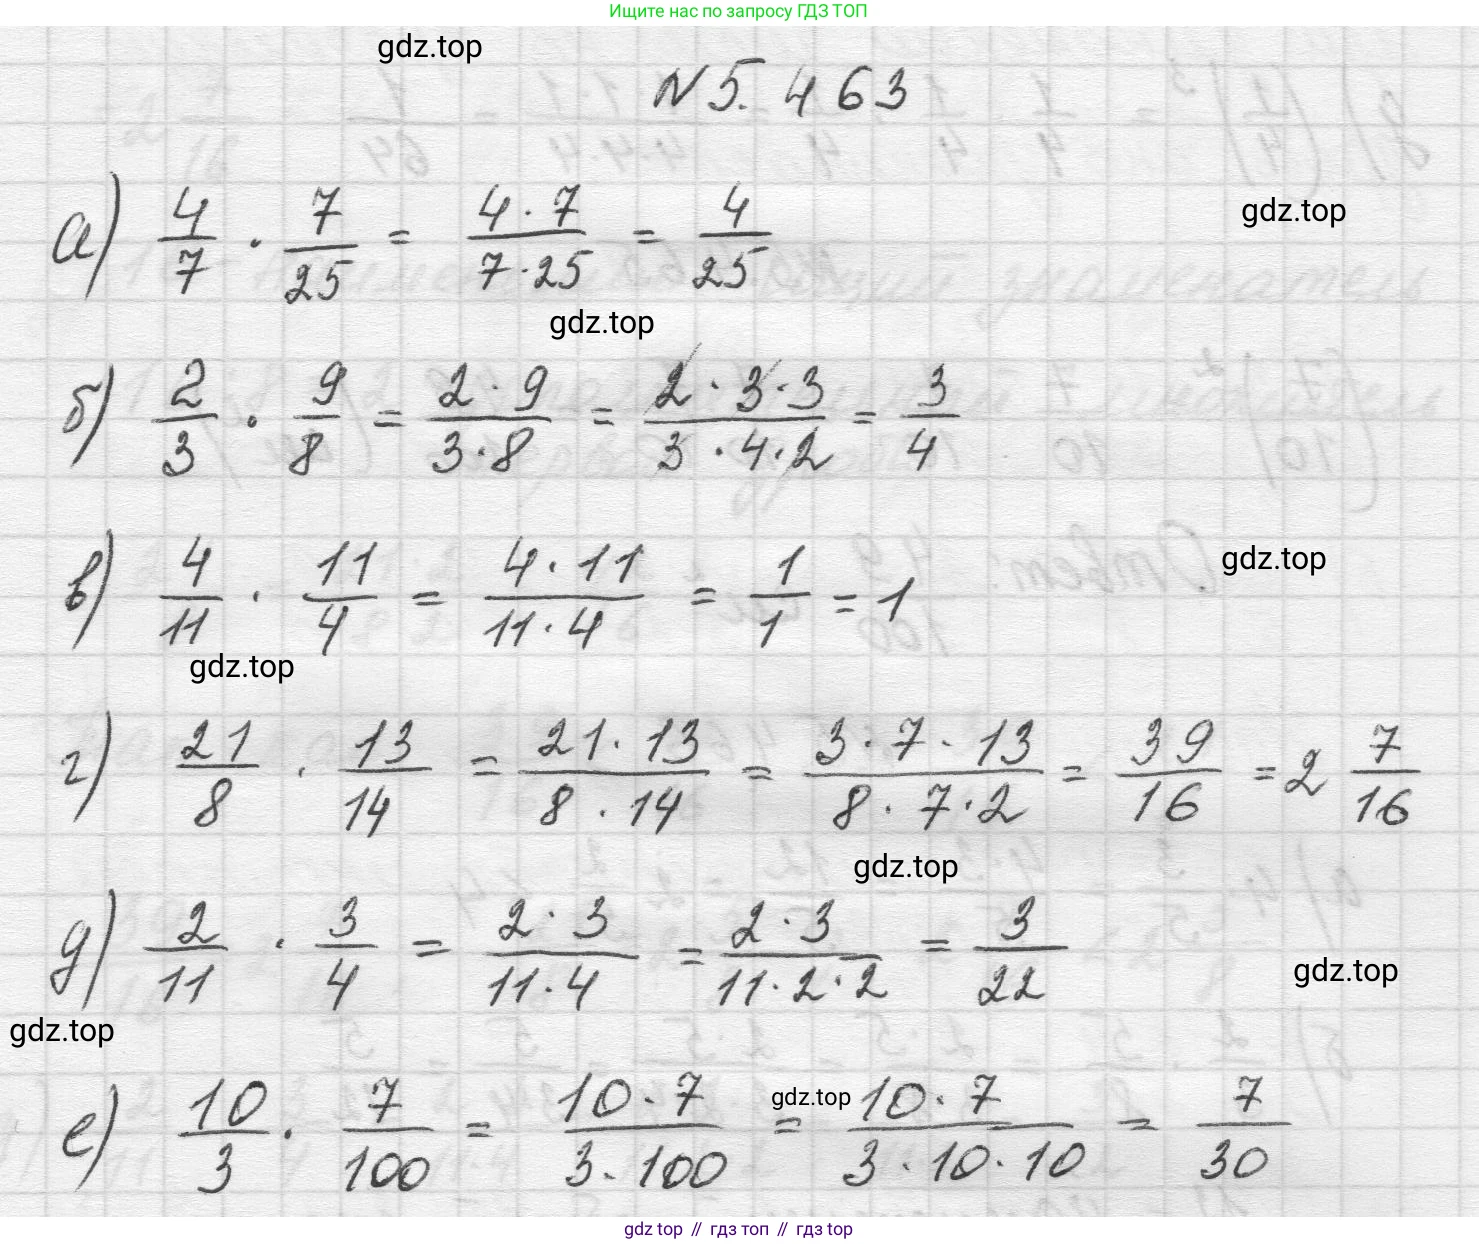 Ищите нас по запросу ГДЗ ТОП
gdz.top
N 5.463
gdz.top
а) 4/7 · 7/25 = 4·7/7·25 = 4/25
gdz.top
б) 2/3 · 9/8 = 2·9/3·8 = 2·3·3/3·4·2 = 3/4
gdz.top
в) 4/11 · 11/4 = 4·11/11·4 = 1/1 = 1
gdz.top
г) 21/8 · 13/14 = 21·13/8·14 = 3·7·13/8·7·2 = 39/16 = 2 7/16
gdz.top
д) 2/11 · 3/4 = 2·3/11·4 = 2·3/11·2·2 = 3/22
gdz.top
gdz.top
gdz.top
е) 10/3 · 7/100 = 10·7/3·100 = 10·7/3·10·10 = 7/30
gdz.top // гдз топ // гдз top